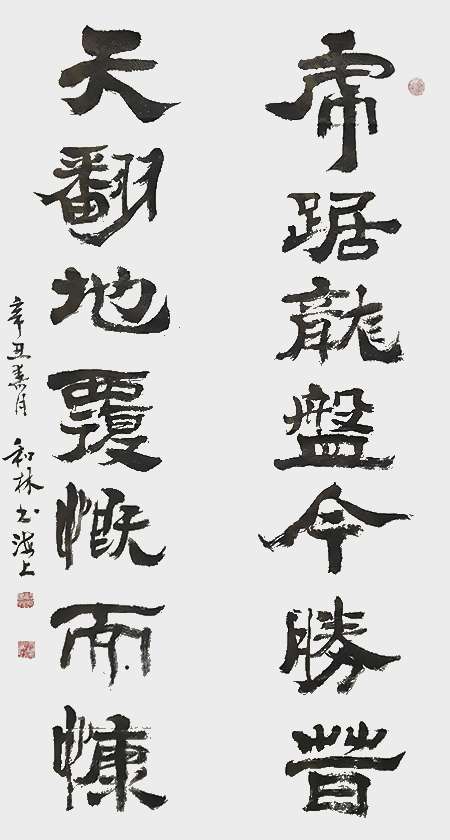 虎踞龍盤今勝昔
天翻地覆慨而慷
辛丑 月 和林书海上